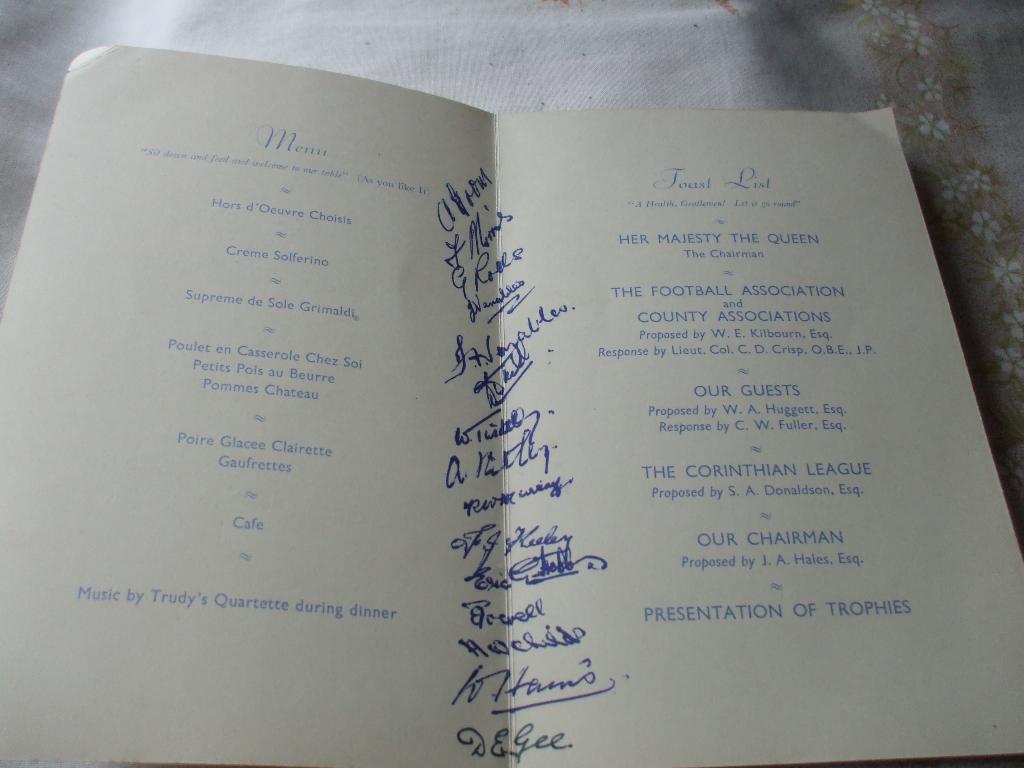 Menu
"Sit down and feed and welcome to our table" (As you like It)
Hors d'Oeuvre Choisis
Creme Solferino
Supreme de Sole Grimaldi
Poulet en Casserole Chez Soi
Petits Pois au Beurre
Pommes Chateau
Poire Glacee Clairette
Gaufrettes
Cafe
Music by Trudy's Quartette during dinner
W. Harris
D E Gee.
Toast List
"A Health, Gentlemen! Let it go round"
HER MAJESTY THE QUEEN
The Chairman
THE FOOTBALL ASSOCIATION
and
COUNTY ASSOCIATIONS
Proposed by W. E. Kilbourn, Esq.
Response by Lieut. Col. C. D. Crisp, O.B.E., J.P.
OUR GUESTS
Proposed by W. A. Huggett, Esq.
Response by C. W. Fuller, Esq.
THE CORINTHIAN LEAGUE
Proposed by S. A. Donaldson, Esq.
OUR CHAIRMAN
Proposed by J. A. Hales, Esq.
PRESENTATION OF TROPHIES